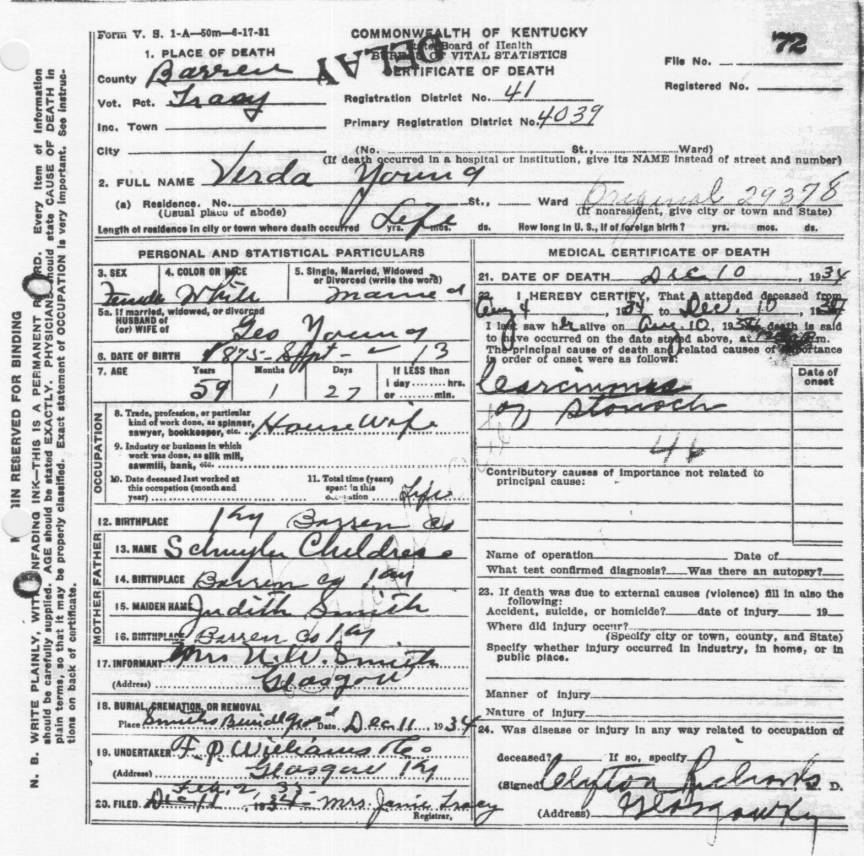 Form V. S. 1-A—50m—6-17-31
COMMONWEALTH OF KENTUCKY
State Board of Health
BUREAU OF VITAL STATISTICS
CERTIFICATE OF DEATH
DELAY
72
File No.
Registered No.
1. PLACE OF DEATH
County Barren
Vot. Pct. Tracy
Inc. Town
City
Registration District No. 41
Primary Registration District No. 4039
(No. St., Ward)
(If death occurred in a hospital or institution, give its NAME instead of street and number)
2. FULL NAME Verda Young
(a) Residence. No. St., Ward Original 29378
(Usual place of abode) (If nonresident, give city or town and State)
Length of residence in city or town where death occurred Life yrs. mos. ds. How long in U. S., if of foreign birth? yrs. mos. ds.
PERSONAL AND STATISTICAL PARTICULARS
3. SEX 4. COLOR OR RACE 5. Single, Married, Widowed
or Divorced (write the word)
Female White Married
5a. If married, widowed, or divorced
HUSBAND of
(or) WIFE of Geo Young
6. DATE OF BIRTH 1875- Sept - 13
7. AGE Years Months Days If LESS than
1 day hrs.
or min.
59 1 27
OCCUPATION
8. Trade, profession, or particular
kind of work done, as spinner,
sawyer, bookkeeper, etc. House Wife
9. Industry or business in which
work was done, as silk mill,
sawmill, bank, etc.
10. Date deceased last worked at
this occupation (month and
year)
11. Total time (years)
spent in this
occupation Life
12. BIRTHPLACE Ky Barren Co
FATHER
13. NAME Schuyler Childress
14. BIRTHPLACE Barren Co Ky
MOTHER
15. MAIDEN NAME Judith Smith
16. BIRTHPLACE Barren Co Ky
17. INFORMANT Mrs N.W. Smith
(Address) Glasgow
18. BURIAL, CREMATION, OR REMOVAL
Place Smiths Date Dec 11 1934
19. UNDERTAKER F. P. Williams & Co
(Address) Glasgow Ky
Feb, 2, 35
20. FILED 1934 Mrs. Janie Tracy
Registrar.
MEDICAL CERTIFICATE OF DEATH
21. DATE OF DEATH Dec 10, 1934
22. I HEREBY CERTIFY, That I attended deceased from
Aug 4, 1934 to Dec. 10, 1934
I last saw her alive on Aug 10, 1934 death is said
to have occurred on the date stated above, at m.
The principal cause of death and related causes of importance
in order of onset were as follows:
Date of
onset
Carcinoma
of Stomach
46
Contributory causes of importance not related to
principal cause:
Name of operation Date of
What test confirmed diagnosis? Was there an autopsy?
23. If death was due to external causes (violence) fill in also the
following:
Accident, suicide, or homicide? date of injury 19
Where did injury occur?
(Specify city or town, county, and State)
Specify whether injury occurred in industry, in home, or in
public place.
Manner of injury
Nature of injury
24. Was disease or injury in any way related to occupation of
deceased? If so, specify
(Signed) Clifton Richards M. D.
(Address) Glasgow Ky
MARGIN RESERVED FOR BINDING
N. B. WRITE PLAINLY, WITH UNFADING INK—THIS IS A PERMANENT RECORD. Every item of information
should be carefully supplied. AGE should be stated EXACTLY. PHYSICIANS should state CAUSE OF DEATH in
plain terms, so that it may be properly classified. Exact statement of OCCUPATION is very important. See instruc-
tions on back of certificate.